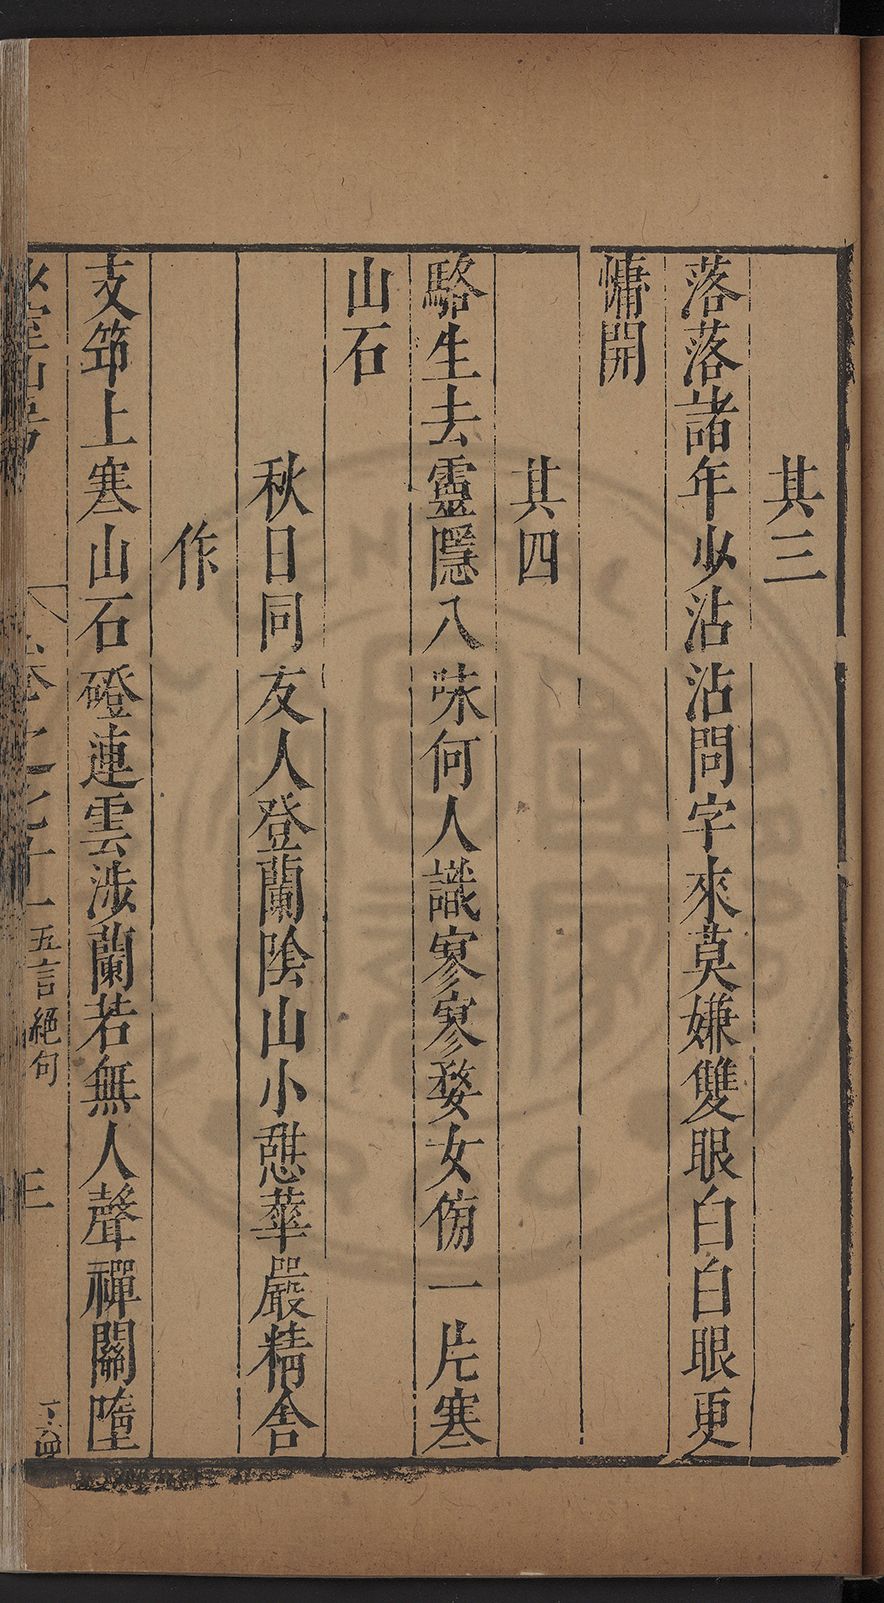 其三
落落諸年少沾沾問字來莫嫌雙眼白白眼更
慵開
其四
駱生去靈隱八味何人識寥寥婺女傍一片寒
山石
秋日同友人登蘭陰山小憩華嚴精舍
作
支筇上寒山石磴連雲涉蘭若無人聲禪關墮
卷之七十一 五言絕句 三